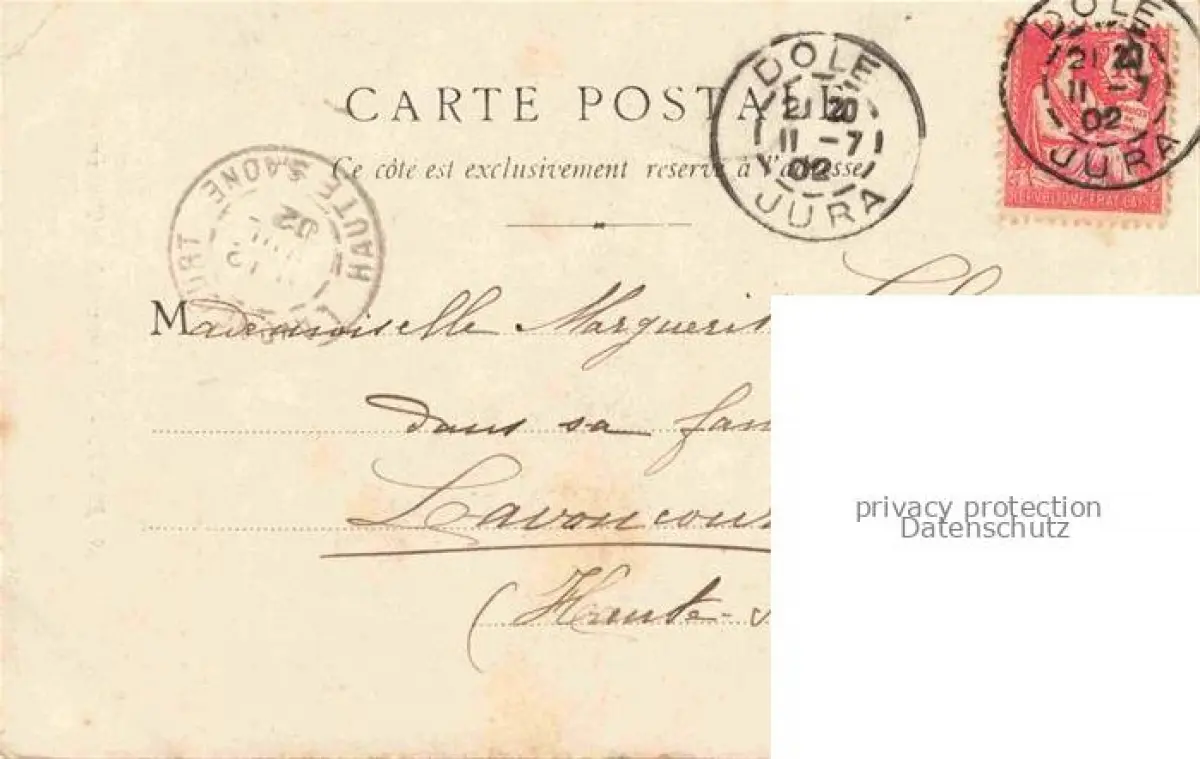 CARTE POSTALE
Ce côte est exclusivement reservé à l'adresse
DOLE
21 20
11 -7
02
JURA
DOLE
21 20
11 -7
02
JURA
HAUTE SAONE
02
Mademoiselle
dans sa
Lavoncour
(Haute-
privacy protection
Datenschutz